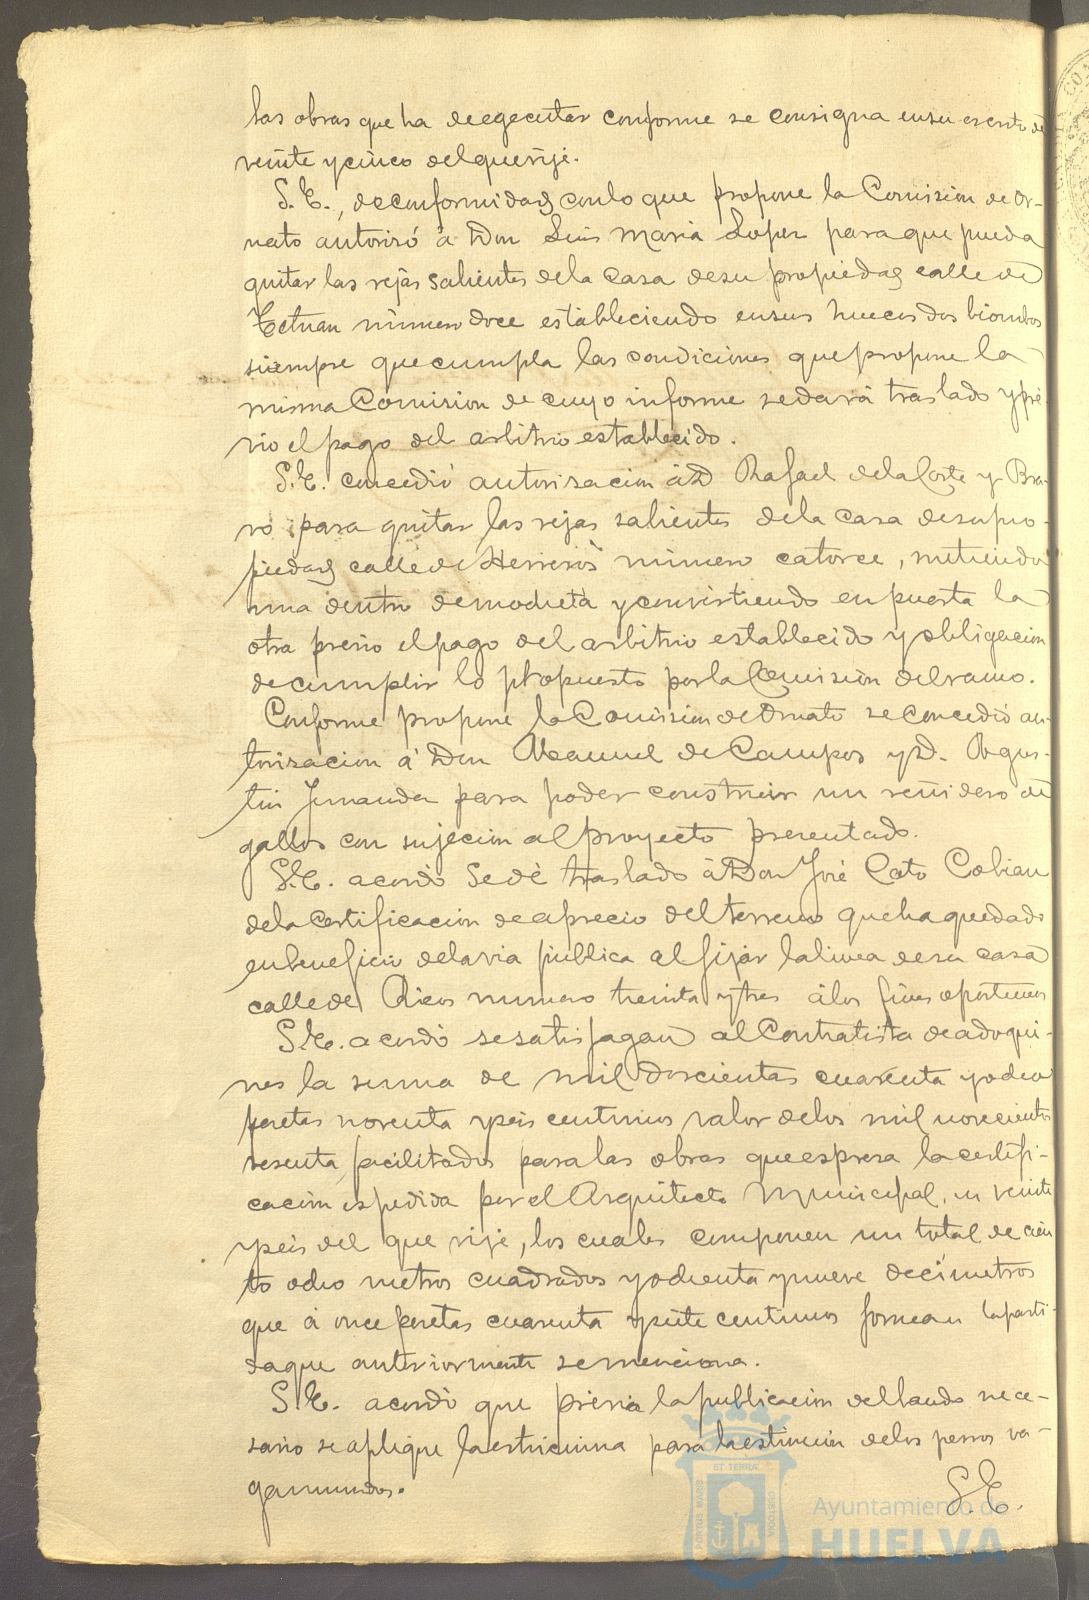 las obras que ha de egecutar conforme se consigna en su escrito de
veinte y cinco del que rije.
S. E., de conformidad con lo que propone la Comision de Or-
nato autorizó á Don Luis Maria Lopez para que pueda
quitar las rejas salientes de la casa de su propiedad calle de
Tetuan número doce estableciendo en sus huecos dos biombos
siempre que cumpla las condiciones que propone la
misma Comision de cuyo informe se dará traslado y pré-
vio el pago del arbitrio establecido.
S. E. concedió autorizacion á D Rafael de la Corte y Bra-
vo para quitar las rejas salientes de la casa de su pro-
piedad calle de Herreros número catorce, metiendo
una dentro de mocheta y convirtiendo en puerta la
otra prévio el pago del arbitrio establecido y obligacion
de cumplir lo propuesto por la Comision del ramo.
Conforme propone la Comision de Ornato se concedió au-
torizacion á Don Manuel de Campos y D. Agus-
tin para poder construir un reñidero de
gallos con sujecion al proyecto presentado.
S. E. acordó se dé traslado á Don José Cato Cobian
de la certificacion de aprecio del terreno que ha quedado
en beneficio de la via pública al fijar la linea de su casa
calle de Ricos numero treinta y tres á los fines oportunos
S. E. acordó se satisfagan al Contratista de adoqui-
nes la suma de mil doscientas cuarenta y ocho
pesetas noventa y seis centimos valor de los mil novecientos
sesenta facilitados para las obras que espresa la certifi-
cacion espedida por el Arquitecto Municipal, en veinte
y seis del que rije, los cuales componen un total de cien-
to ocho metros cuadrados y ochenta y nueve decímetros
que á once pesetas cuarenta y siete centimos forman la parti-
da que anteriormente se menciona.
S. E. acordó que prévia la publicacion del bando nece-
sario se aplique la estricnina para la estincion de los perros va-
gamundos.
S. E.
ET TERRAE
PORTUS MARIS
CUSTODIA
Ayuntamiento de
HUELVA